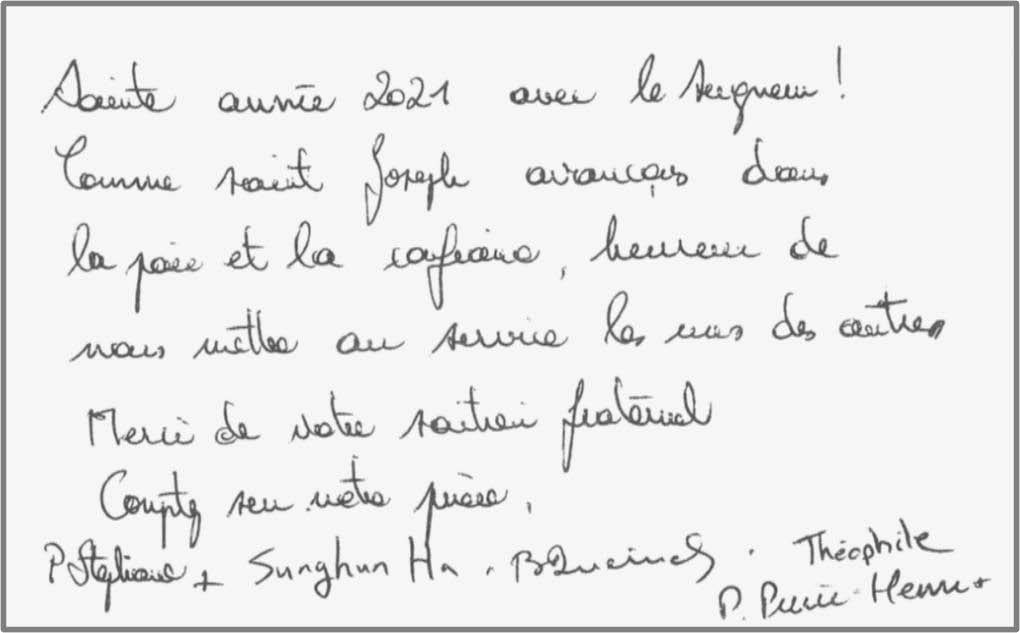 Sainte année 2021 avec le Seigneur !
Comme saint Joseph avançons dans
la paix et la confiance, heureux de
nous mettre au service les uns des autres
Merci de votre soutien fraternel
Comptez sur notre prière.
P. Stéphane + Sunghun Ha . . Théophile
P. Pierre-Henri +